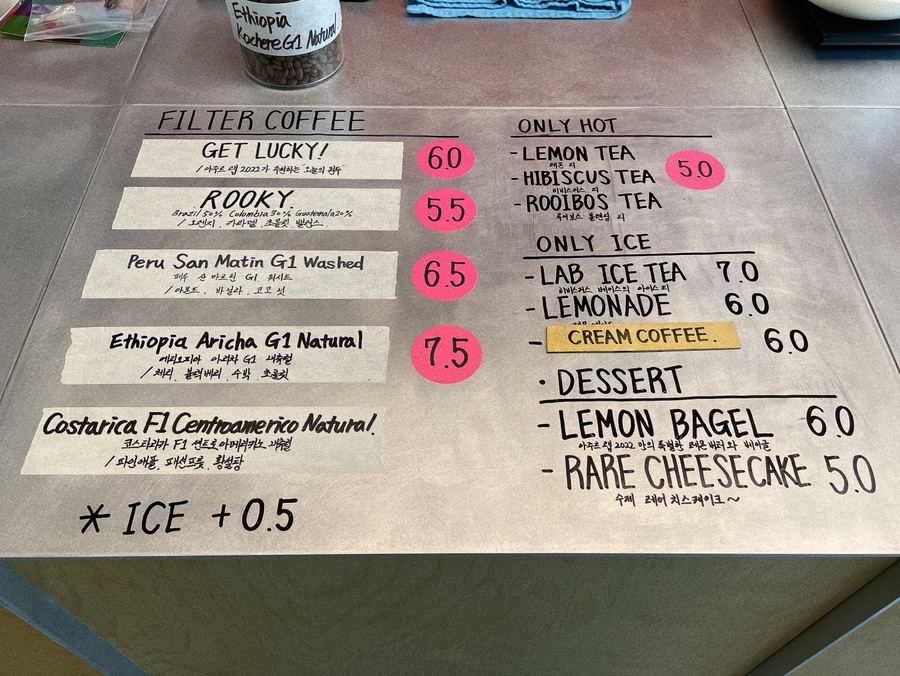 Ethiopia
Kochere G1 Natural
FILTER COFFEE
GET LUCKY!
/ 아우트랩 2022가 추천하는 오늘의 원두
6.0
ROOKY.
Brazil 50% Colombia 30% Guatemala 20%
/ 오렌지, 카라멜, 초콜릿 밸런스
5.5
Peru San Matin G1 Washed
페루 산 마르틴 G1 워시드
/ 아몬드, 바닐라, 코코넛
6.5
Ethiopia Aricha G1 Natural
에티오피아 아리차 G1 내추럴
/ 체리, 블랙베리, 수박, 초콜릿
7.5
Costarica F1 Centroamerico Natural.
코스타리카 F1 센트로아메리카노 내추럴
/ 파인애플, 패션프룻, 황설탕
* ICE +0.5
ONLY HOT
- LEMON TEA
레몬 티
- HIBISCUS TEA
히비스커스 티
5.0
- ROOIBOS TEA
루이보스 블렌딩 티
ONLY ICE
- LAB ICE TEA 7.0
히비스커스 베이스의 아이스티
- LEMONADE 6.0
- CREAM COFFEE. 6.0
· DESSERT
- LEMON BAGEL 6.0
아우트랩 2022 만의 특별한 레몬버터와 베이글
- RARE CHEESECAKE 5.0
수제 레어 치즈케이크 ~